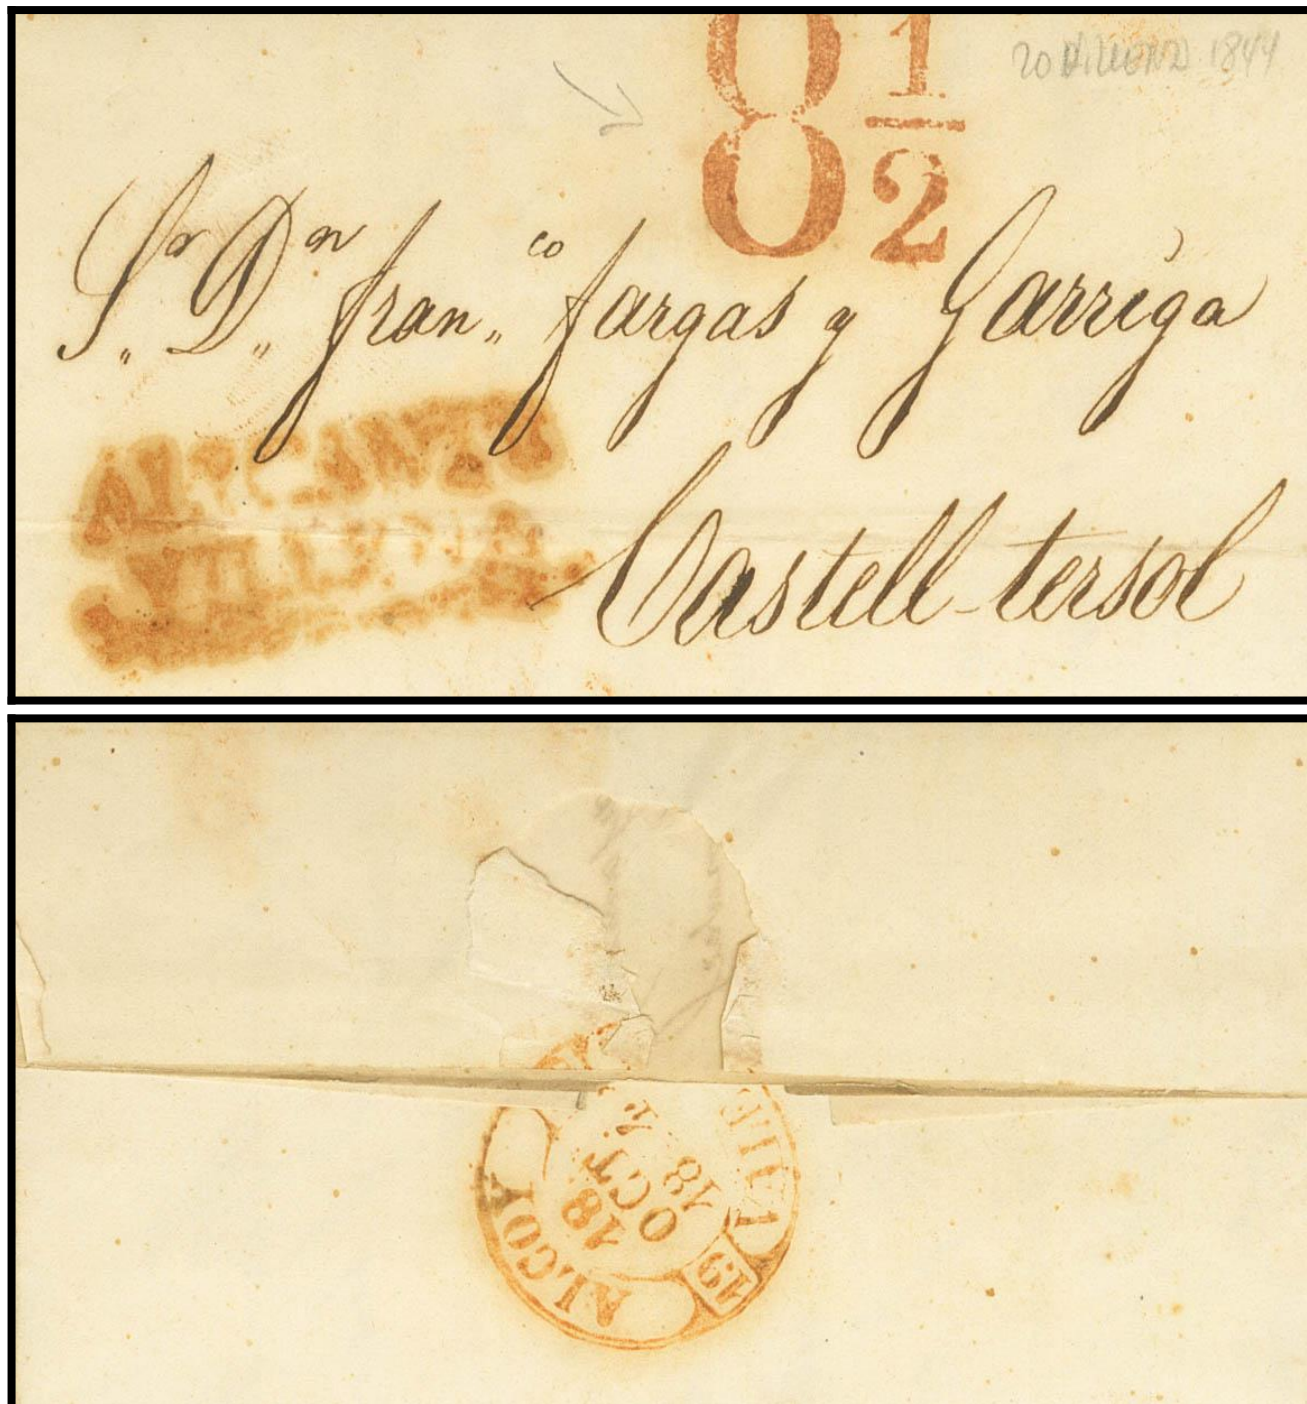 8 1/2
20 1844
Sr. Dn. Franco. Fargas y Garriga
ALICANTE
Castell-tersol
ALCOY
18
OCT
18
19